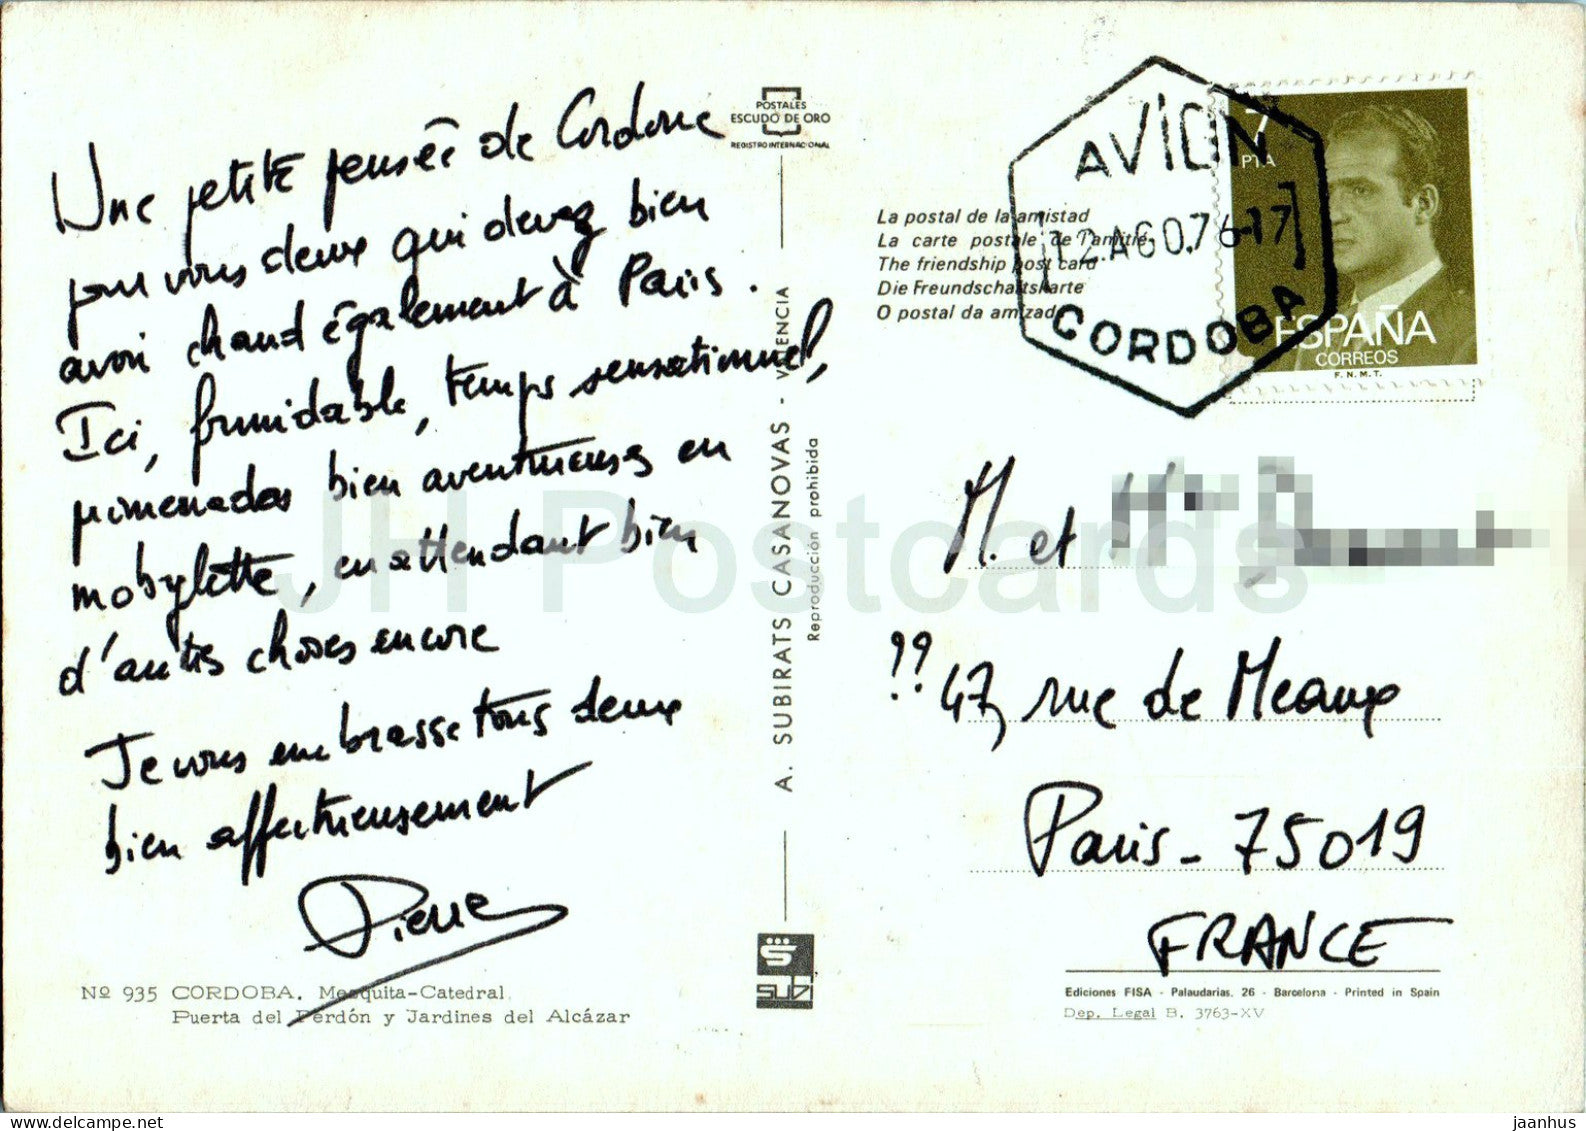 Une petite pensée de Cordoue
pour vous deux qui devez bien
avoir chaud également à Paris.
Ici, formidable, temps sensationnel,
promenades bien aventureuses en
mobylette, en attendant bien
d'autres choses encore
Je vous embrasse tous deux
bien affectueusement
Pierre
Nº 935 CORDOBA. Mezquita-Catedral
Puerta del Perdón y Jardines del Alcázar
POSTALES
ESCUDO DE ORO
REGISTRO INTERNACIONAL
A. SUBIRATS CASANOVAS - VALENCIA
Reproducción prohibida
S
subi
La postal de la amistad
La carte postale de l'amitié
The friendship post card
Die Freundschaftskarte
O postal da amizade
AVION
12.AGO.76-17
CORDOBA
7
PTA
ESPAÑA
CORREOS
F.N.M.T.
M. et
?? 47, rue de Meaux
Paris - 75019
FRANCE
Ediciones FISA - Palaudarias, 26 - Barcelona - Printed in Spain
Dep. Legal B. 3763-XV
JH Postcards
jaanhus